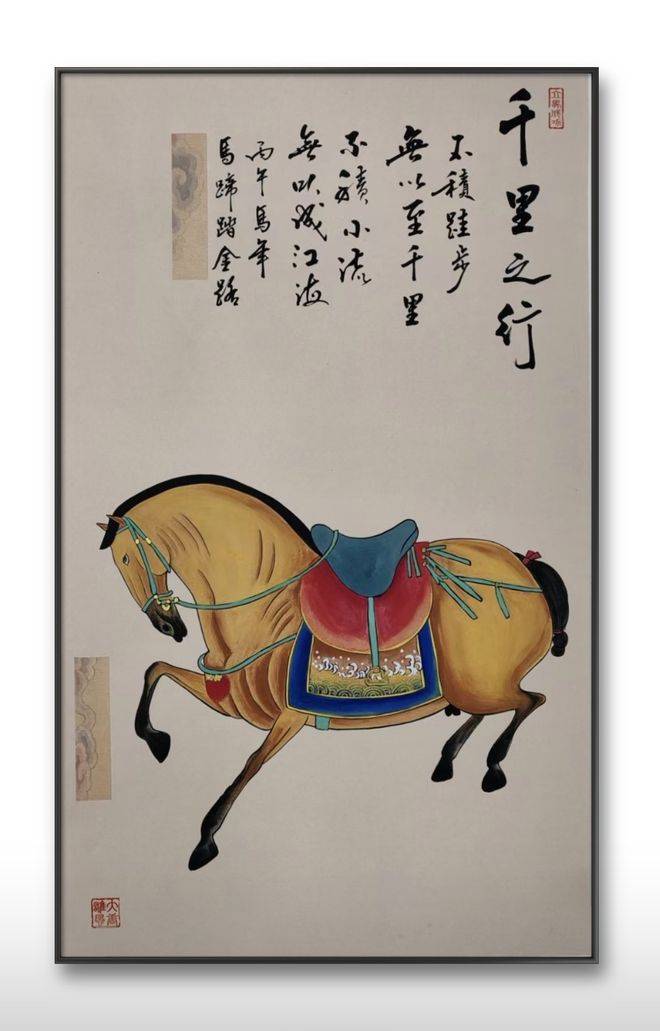 千里之行
不積跬步
無以至千里
不積小流
無以成江海
丙午馬年
馬蹄踏金路